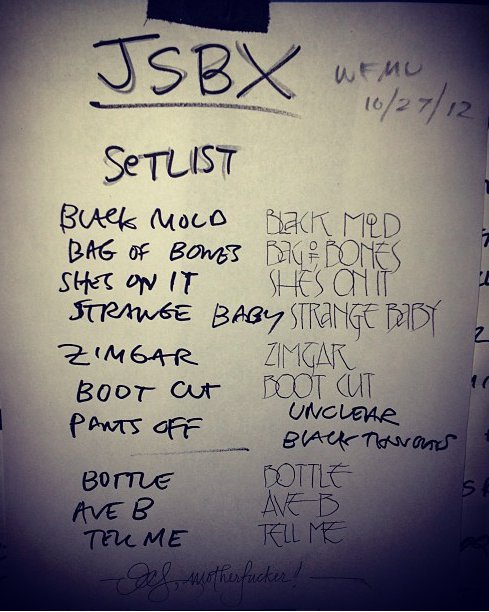 JSBX
WFMU
10/27/12
SETLIST
BLACK MOLD BLACK MOLD
BAG OF BONES BAG OF BONES
SHES ON IT SHES ON IT
STRANGE BABY STRANGE BABY
ZIMGAR ZIMGAR
BOOT CUT BOOT CUT
PANTS OFF UNCLEAR
BLACK
BOTTLE BOTTLE
AVE B AVE B
TELL ME TELL ME
motherfucker!